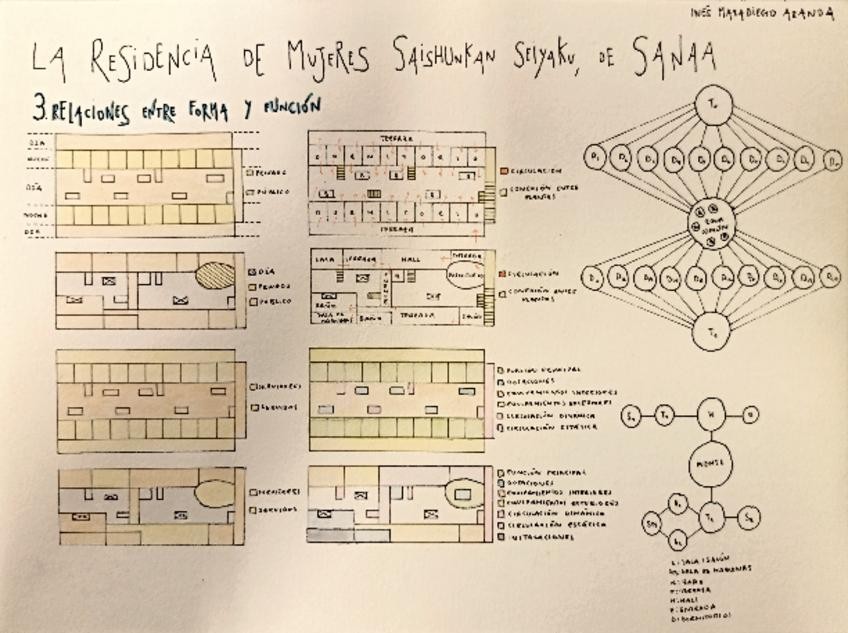 INÉS MATADIEGO ARANDA
LA RESIDENCIA DE MUJERES SAISHUNKAN SEIYAKU, DE SANAA
3. RELACIONES ENTRE FORMA Y FUNCIÓN
DÍA
NOCHE
DÍA
NOCHE
DÍA
PRIVADO
PÚBLICO
TERRAZA
DORMITORIO
DORMITORIO
TERRAZA
CIRCULACIÓN
CONEXIÓN ENTRE
PLANTAS
DÍA
PRIVADO
PÚBLICO
SALA
TERRAZA
HALL
TERRAZA
BAÑO
SALA DE
MÁQUINAS
BAÑO
TERRAZA
SALÓN
CIRCULACIÓN
CONEXIÓN ENTRE
PLANTAS
SERVIDORES
SERVIDOS
FUNCIÓN PRINCIPAL
DOTACIONES
EQUIPAMIENTOS INTERIORES
EQUIPAMIENTOS EXTERIORES
CIRCULACIÓN DINÁMICA
CIRCULACIÓN ESTÁTICA
SERVIDORES
SERVIDOS
FUNCIÓN PRINCIPAL
DOTACIONES
EQUIPAMIENTOS INTERIORES
EQUIPAMIENTOS EXTERIORES
CIRCULACIÓN DINÁMICA
CIRCULACIÓN ESTÁTICA
INSTALACIONES
ZONA
COMÚN
H
S: SALA / SALÓN
SM: SALA DE MÁQUINAS
B: BAÑO
T: TERRAZA
H: HALL
E: ENTRADA
D: DORMITORIOS